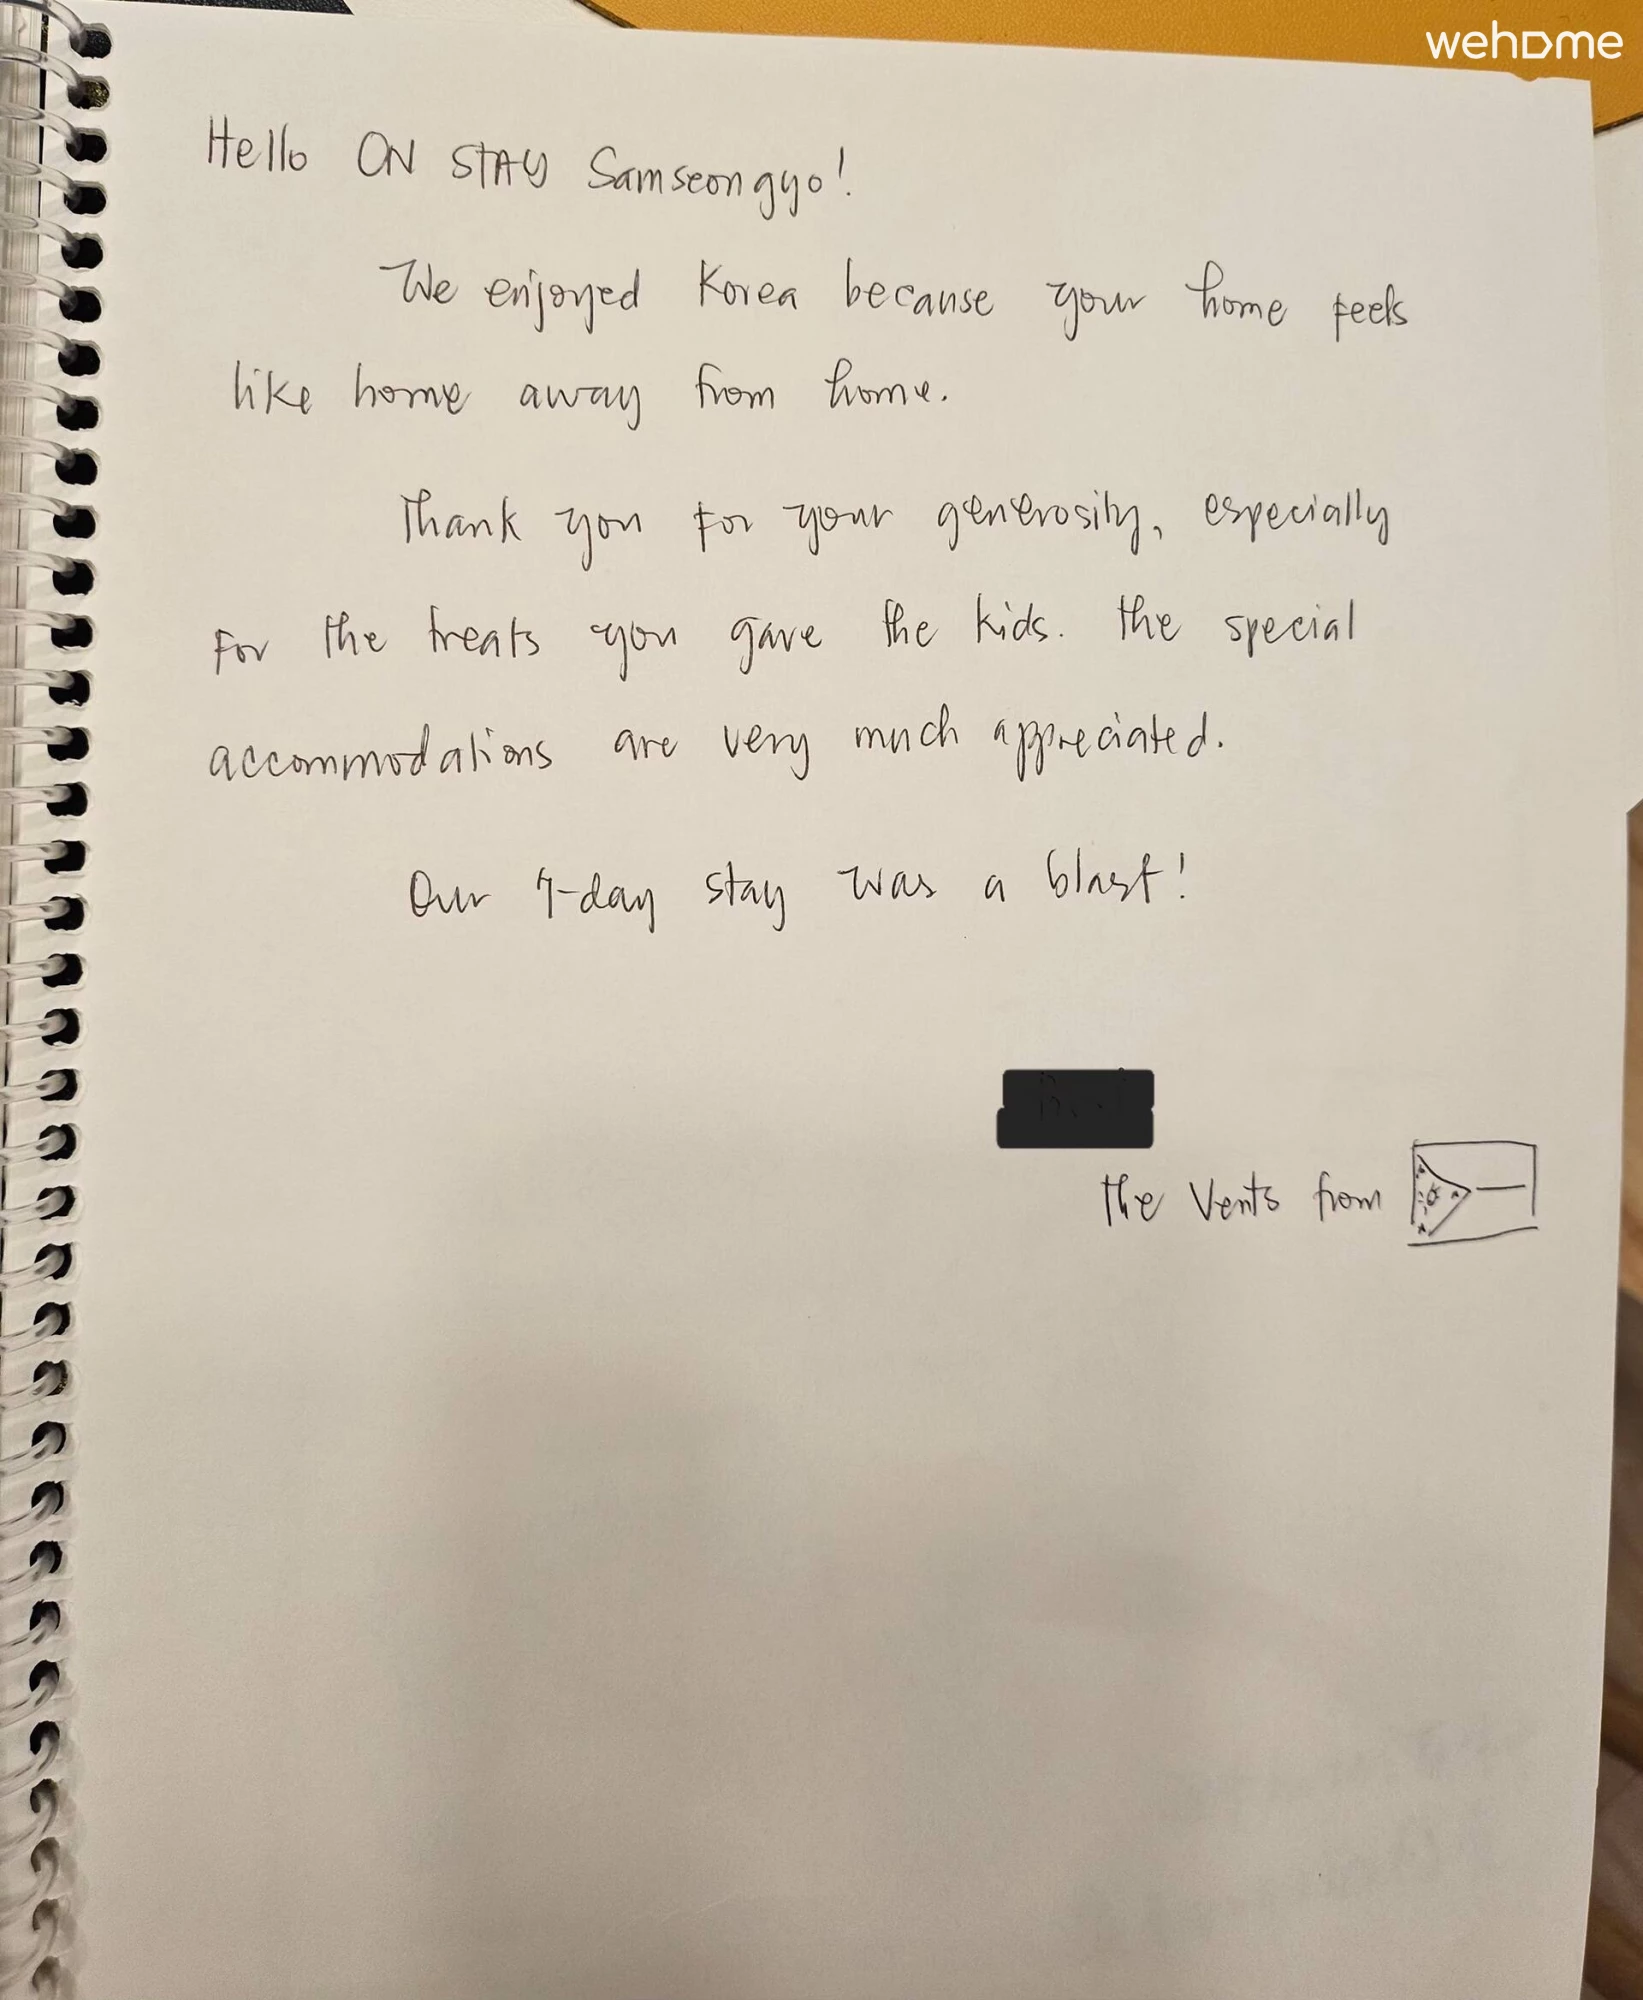 wehome
Hello ON STAY Samseongyo!
We enjoyed Korea because your home feels
like home away from home.
Thank you for your generosity, especially
for the treats you gave the kids. The special
accommodations are very much appreciated.
Our 7-day stay was a blast!
The Vents from